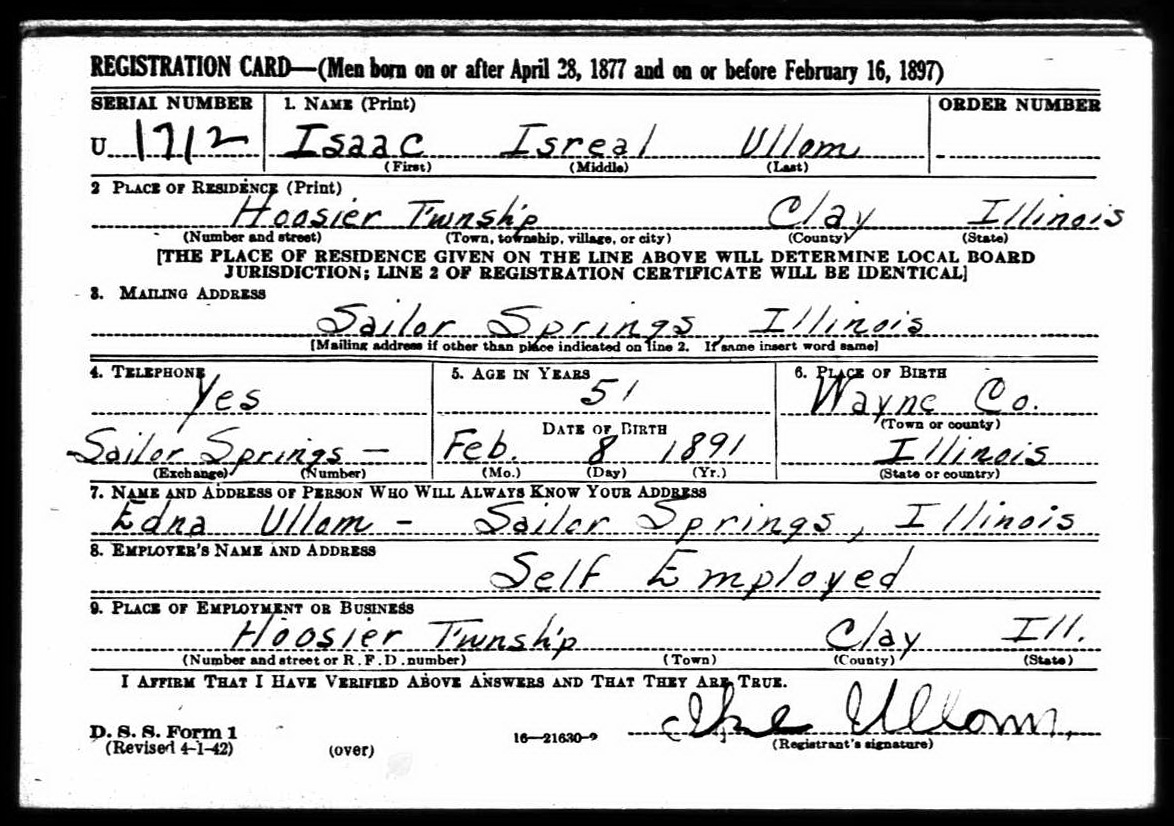 REGISTRATION CARD—(Men born on or after April 28, 1877 and on or before February 16, 1897)
SERIAL NUMBER 1. NAME (Print) ORDER NUMBER
U 1712 Isaac Isreal Ullom
(First) (Middle) (Last)
2 PLACE OF RESIDENCE (Print)
Hoosier Twnship Clay Illinois
(Number and street) (Town, township, village, or city) (County) (State)
[THE PLACE OF RESIDENCE GIVEN ON THE LINE ABOVE WILL DETERMINE LOCAL BOARD
JURISDICTION; LINE 2 OF REGISTRATION CERTIFICATE WILL BE IDENTICAL]
3. MAILING ADDRESS
Sailor Springs, Illinois
[Mailing address if other than place indicated on line 2. If same insert word same]
4. TELEPHONE 5. AGE IN YEARS 6. PLACE OF BIRTH
Yes 51 Wayne Co.
DATE OF BIRTH (Town or county)
Sailor Springs — Feb. 8 1891 Illinois
(Exchange) (Number) (Mo.) (Day) (Yr.) (State or country)
7. NAME AND ADDRESS OF PERSON WHO WILL ALWAYS KNOW YOUR ADDRESS
Edna Ullom - Sailor Springs, Illinois
8. EMPLOYER'S NAME AND ADDRESS
Self Employed
9. PLACE OF EMPLOYMENT OR BUSINESS
Hoosier Twnship Clay Ill.
(Number and street or R. F. D. number) (Town) (County) (State)
I AFFIRM THAT I HAVE VERIFIED ABOVE ANSWERS AND THAT THEY ARE TRUE.
Ike Ullom
D. S. S. Form 1
(Revised 4-1-42) (over) 16—21630-2 (Registrant's signature)